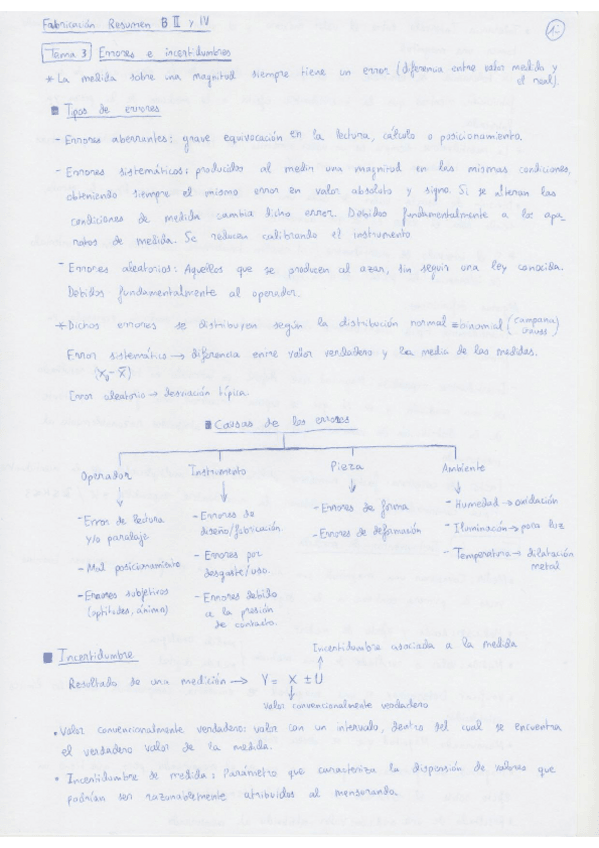 Fabricación Resumen B II y IV
1.-
Tema 3 Errores e incertidumbres
* La medida sobre una magnitud siempre tiene un error (diferencia entre valor medido y
el real).
■ Tipos de errores
- Errores aberrantes: grave equivocación en la lectura, cálculo o posicionamiento.
- Errores sistemáticos: producidos al medir una magnitud en las mismas condiciones,
obteniendo siempre el mismo error en valor absoluto y signo. Si se alteran las
condiciones de medida cambia dicho error. Debidos fundamentalmente a los apa_
ratos de medida. Se reducen calibrando el instrumento
- Errores aleatorios: Aquellos que se producen al azar, sin seguir una ley conocida.
Debidos fundamentalmente al operador.
* Dichos errores se distribuyen según la distribución normal = binomial (campana
Gauss)
Error sistemático → diferencia entre valor verdadero y la media de las medidas.
(x₀ - x̄)
Error aleatorio → desviación típica.
■ Causas de los errores
Operador Instrumento Pieza Ambiente
- Error de lectura
y/o paralaje
- Mal posicionamiento
- Errores subjetivos
(aptitudes, ánimo)
- Errores de
diseño/fabricación.
- Errores por
desgaste/uso.
- Errores debido
a la presión
de contacto.
- Errores de forma
- Errores de deformación
- Humedad → oxidación
- Iluminación → poca luz
- Temperatura → dilatación
metal
■ Incertidumbre
Incertidumbre asociada a la medida
Resultado de una medición → Y = X ± U
Valor convencionalmente verdadero
• Valor convencionalmente verdadero: valor con un intervalo, dentro del cual se encuentra
el verdadero valor de la medida.
• Incertidumbre de medida: Parámetro que caracteriza la dispersión de valores que
podrían ser razonablemente atribuidos al mensurando.